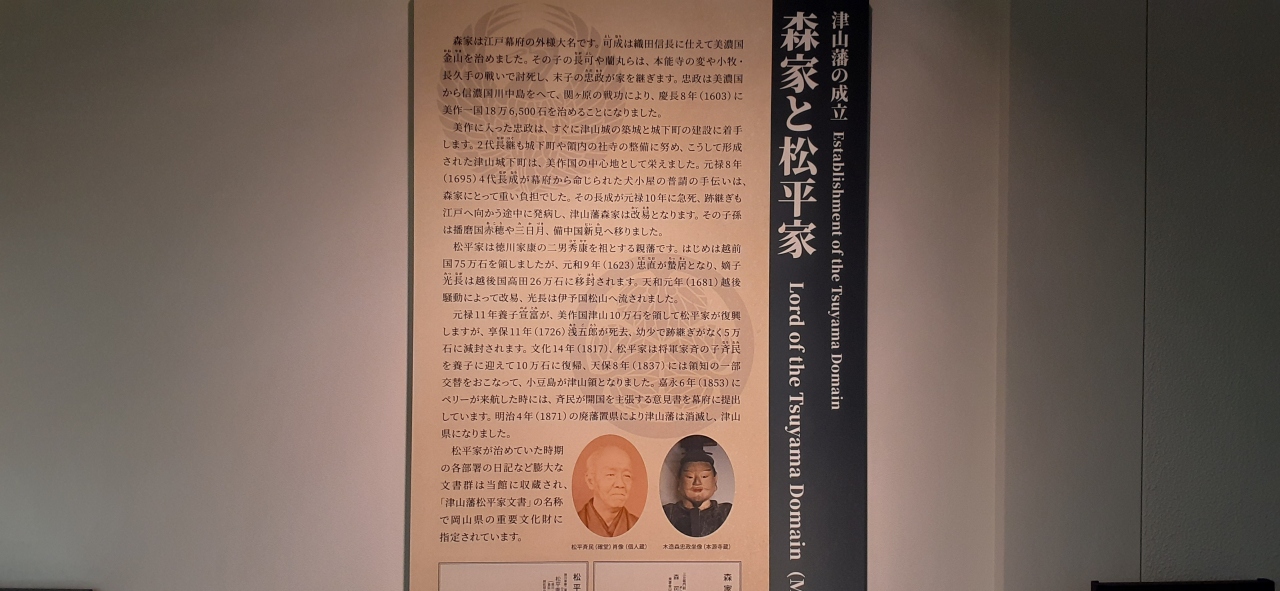 津山藩の成立 Establishment of the Tsuyama Domain
森家と松平家 Lord of the Tsuyama Domain (M
森家は江戸幕府の外様大名です。可成は織田信長に仕えて美濃国
金山を治めました。その子の長可や蘭丸らは、本能寺の変や小牧・
長久手の戦いで討死し、末子の忠政が家を継ぎます。忠政は美濃国
から信濃国川中島をへて、関ヶ原の戦功により、慶長8年(1603)に
美作一国18万6,500石を治めることになりました。
美作に入った忠政は、すぐに津山城の築城と城下町の建設に着手
します。2代長継も城下町や領内の社寺の整備に努め、こうして形成
された津山城下町は、美作国の中心地として栄えました。元禄8年
(1695)4代長成が幕府から命じられた犬小屋の普請の手伝いは、
森家にとって重い負担でした。その長成が元禄10年に急死、跡継ぎも
江戸へ向かう途中に発病し、津山藩森家は改易となります。その子孫
は播磨国赤穂や三日月、備中国新見へ移りました。
松平家は徳川家康の二男秀康を祖とする親藩です。はじめは越前
国75万石を領しましたが、元和9年(1623)忠直が蟄居となり、嫡子
光長は越後国高田26万石に移封されます。天和元年(1681)越後
騒動によって改易、光長は伊予国松山へ流されました。
元禄11年養子宣富が、美作国津山10万石を領して松平家が復興
しますが、享保11年(1726)浅五郎が死去、幼少で跡継ぎがなく5万
石に減封されます。文化14年(1817)、松平家は将軍家斉の子斉民
を養子に迎えて10万石に復帰、天保8年(1837)には領知の一部
交替をおこなって、小豆島が津山領となりました。嘉永6年(1853)に
ペリーが来航した時には、斉民が開国を主張する意見書を幕府に提出
しています。明治4年(1871)の廃藩置県により津山藩は消滅し、津山
県になりました。
松平家が治めていた時期
の各部署の日記など膨大な
文書群は当館に収蔵され、
「津山藩松平家文書」の名称
で岡山県の重要文化財に
指定されています。
松平斉民(確堂)肖像(個人蔵)
木造森忠政坐像(本源寺蔵)
松平
森家